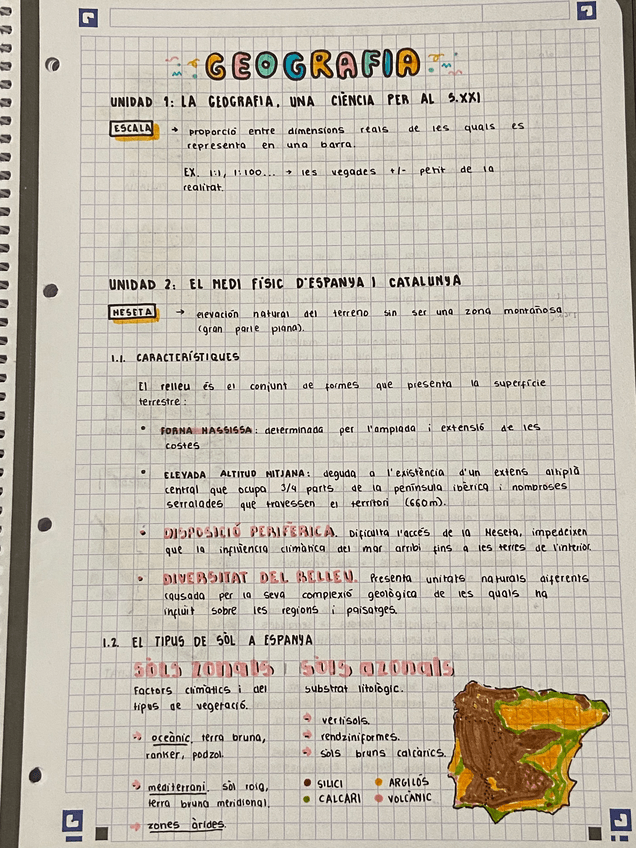 GEOGRAFIA
UNIDAD 1: LA GEOGRAFIA, UNA CIÈNCIA PER AL S.XXI
ESCALA → proporció entre dimensions reals de les quals es
representa en una barra.
EX. 1:1, 1:100... → les vegades +/- petit de la
realitat.
UNIDAD 2: EL MEDI FÍSIC D'ESPANYA I CATALUNYA
MESETA → elevación natural del terreno sin ser una zona montañosa
(gran parte plana).
1.1. CARACTERÍSTIQUES
El relleu és el conjunt de formes que presenta la superfície
terrestre:
• FORMA MASSISSA: determinada per l'amplada i extensió de les
costes
• ELEVADA ALTITUD MITJANA: deguda a l'existència d'un extens altiplà
central que ocupa 3/4 parts de la península ibèrica i nombroses
serralades que travessen el territori (660m).
• DISPOSICIÓ PERIFÈRICA. Dificulta l'accés de la Meseta, impedeixen
que la influència climàtica del mar arribi fins a les terres de l'interior.
• DIVERSITAT DEL RELLEU. Presenta unitats naturals diferents
causada per la seva complexió geològica de les quals ha
influit sobre les regions i paisatges.
1.2. EL TIPUS DE SÒL A ESPANYA
sòls zonals | sòls azonals
Factors climàtics i del
tipus de vegetació.
→ oceànic, terra bruna,
ranker, podzol.
→ mediterrani, sòl roig,
terra bruna meridional.
→ zones àrides.
substrat litològic.
→ vertisols.
→ rendziniformes.
→ sòls bruns calcàrics.
• SILICI • ARGILÓS
• CALCARI • VOLCÀNIC